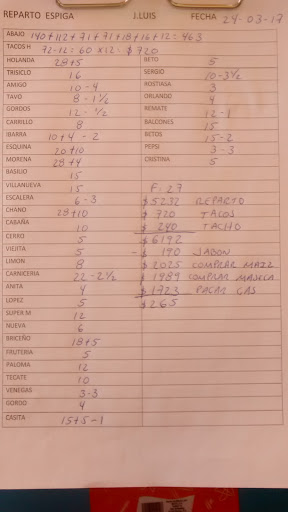 REPARTO ESPIGA J.LUIS FECHA 24-03-17
ABAJO 140+112+71+71+18+16+12= 463
TACOS H 72-12=60 x12=$720
HOLANDA 28+5 BETO 5
TRISICLO 16 SERGIO 10-3½
AMIGO 10-4 ROSTIASA 3
TAVO 8-1½ ORLANDO 4
GORDOS 12-½ REMATE 12-1
CARRILLO 8 BALCONES 15
IBARRA 10+4-2 BETOS 15-2
ESQUINA 20+10 PEPSI 3-3
MORENA 28+4 CRISTINA 5
BASILIO 15
VILLANUEVA 15 F. 27
ESCALERA 6-3 $5232 REPARTO
CHANO 28+10 $ 720 TACOS
CABAÑA 10 $ 240 TACHO
CERRO 5 $6192
VIEJITA 5 - $ 190 JABON
LIMON 8 $2025 COMPRAR MAIZ
CARNICERIA 22-2½ $1989 COMPRAR MASECA
ANITA 4 $1723 PAGAR GAS
LOPEZ 5 $265
SUPER M 12
NUEVA 6
BRICEÑO 18+5
FRUTERIA 5
PALOMA 12
TECATE 10
VENEGAS 3-3
GORDO 4
CASITA 15+5-1